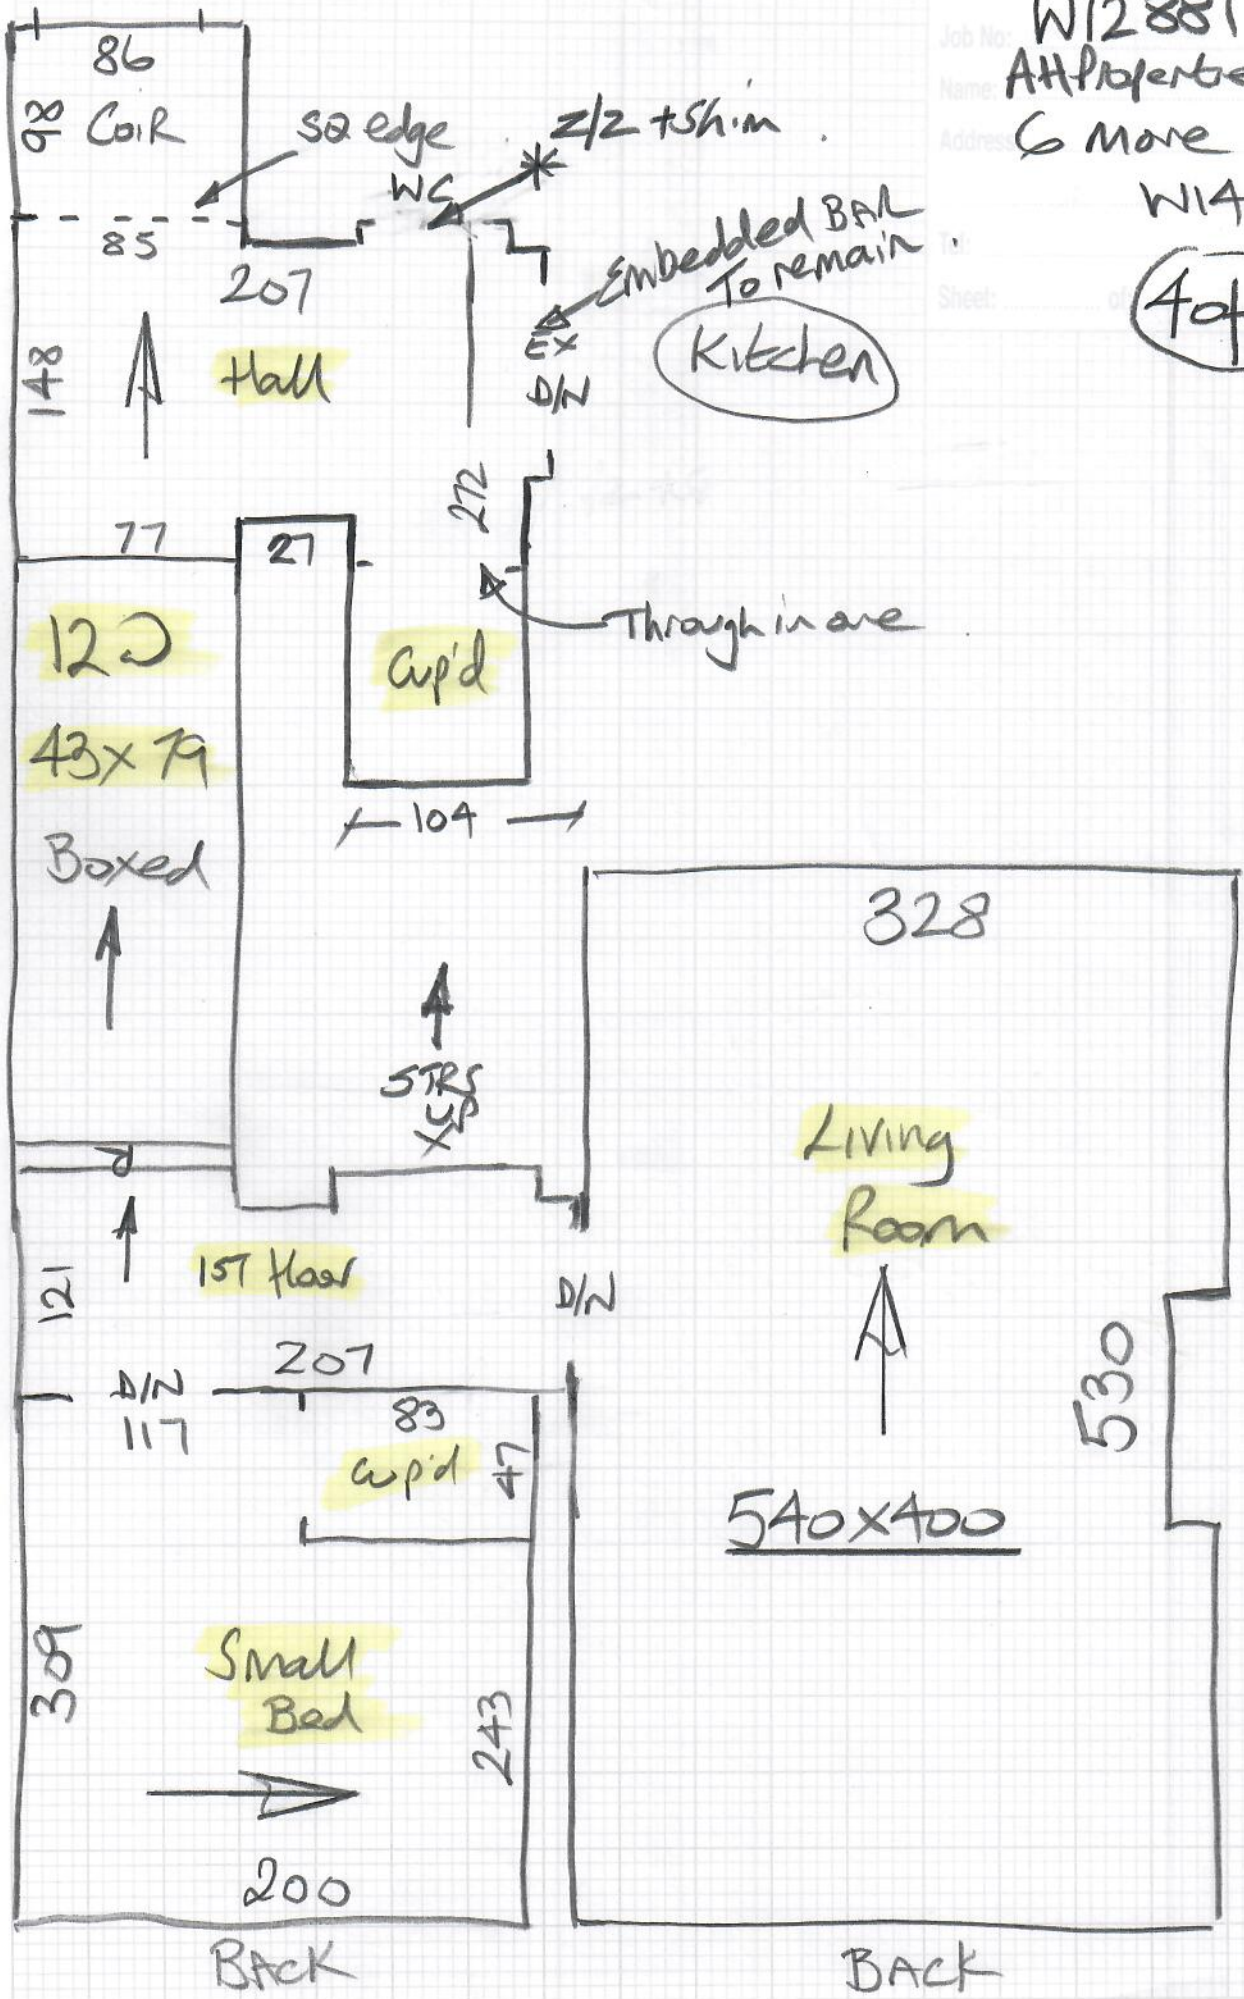 Job No: W12881
Name: AHPropertie
Address 6 More
W14
Sheet: of
4of
86
98
CoiR
SQ edge
Z/Z + Shim
WC
85
207
Embedded BAR
To remain.
148
Hall
EX
D/N
Kitchen
272
77
27
Through in one
12
43x79
Cup'd
Boxed
104
328
5TRS
UP
X
Living
Room
1ST floor
121
D/N
207
530
D/N
117
83
Cup'd
47
540x400
309
Small
Bed
243
200
BACK
BACK